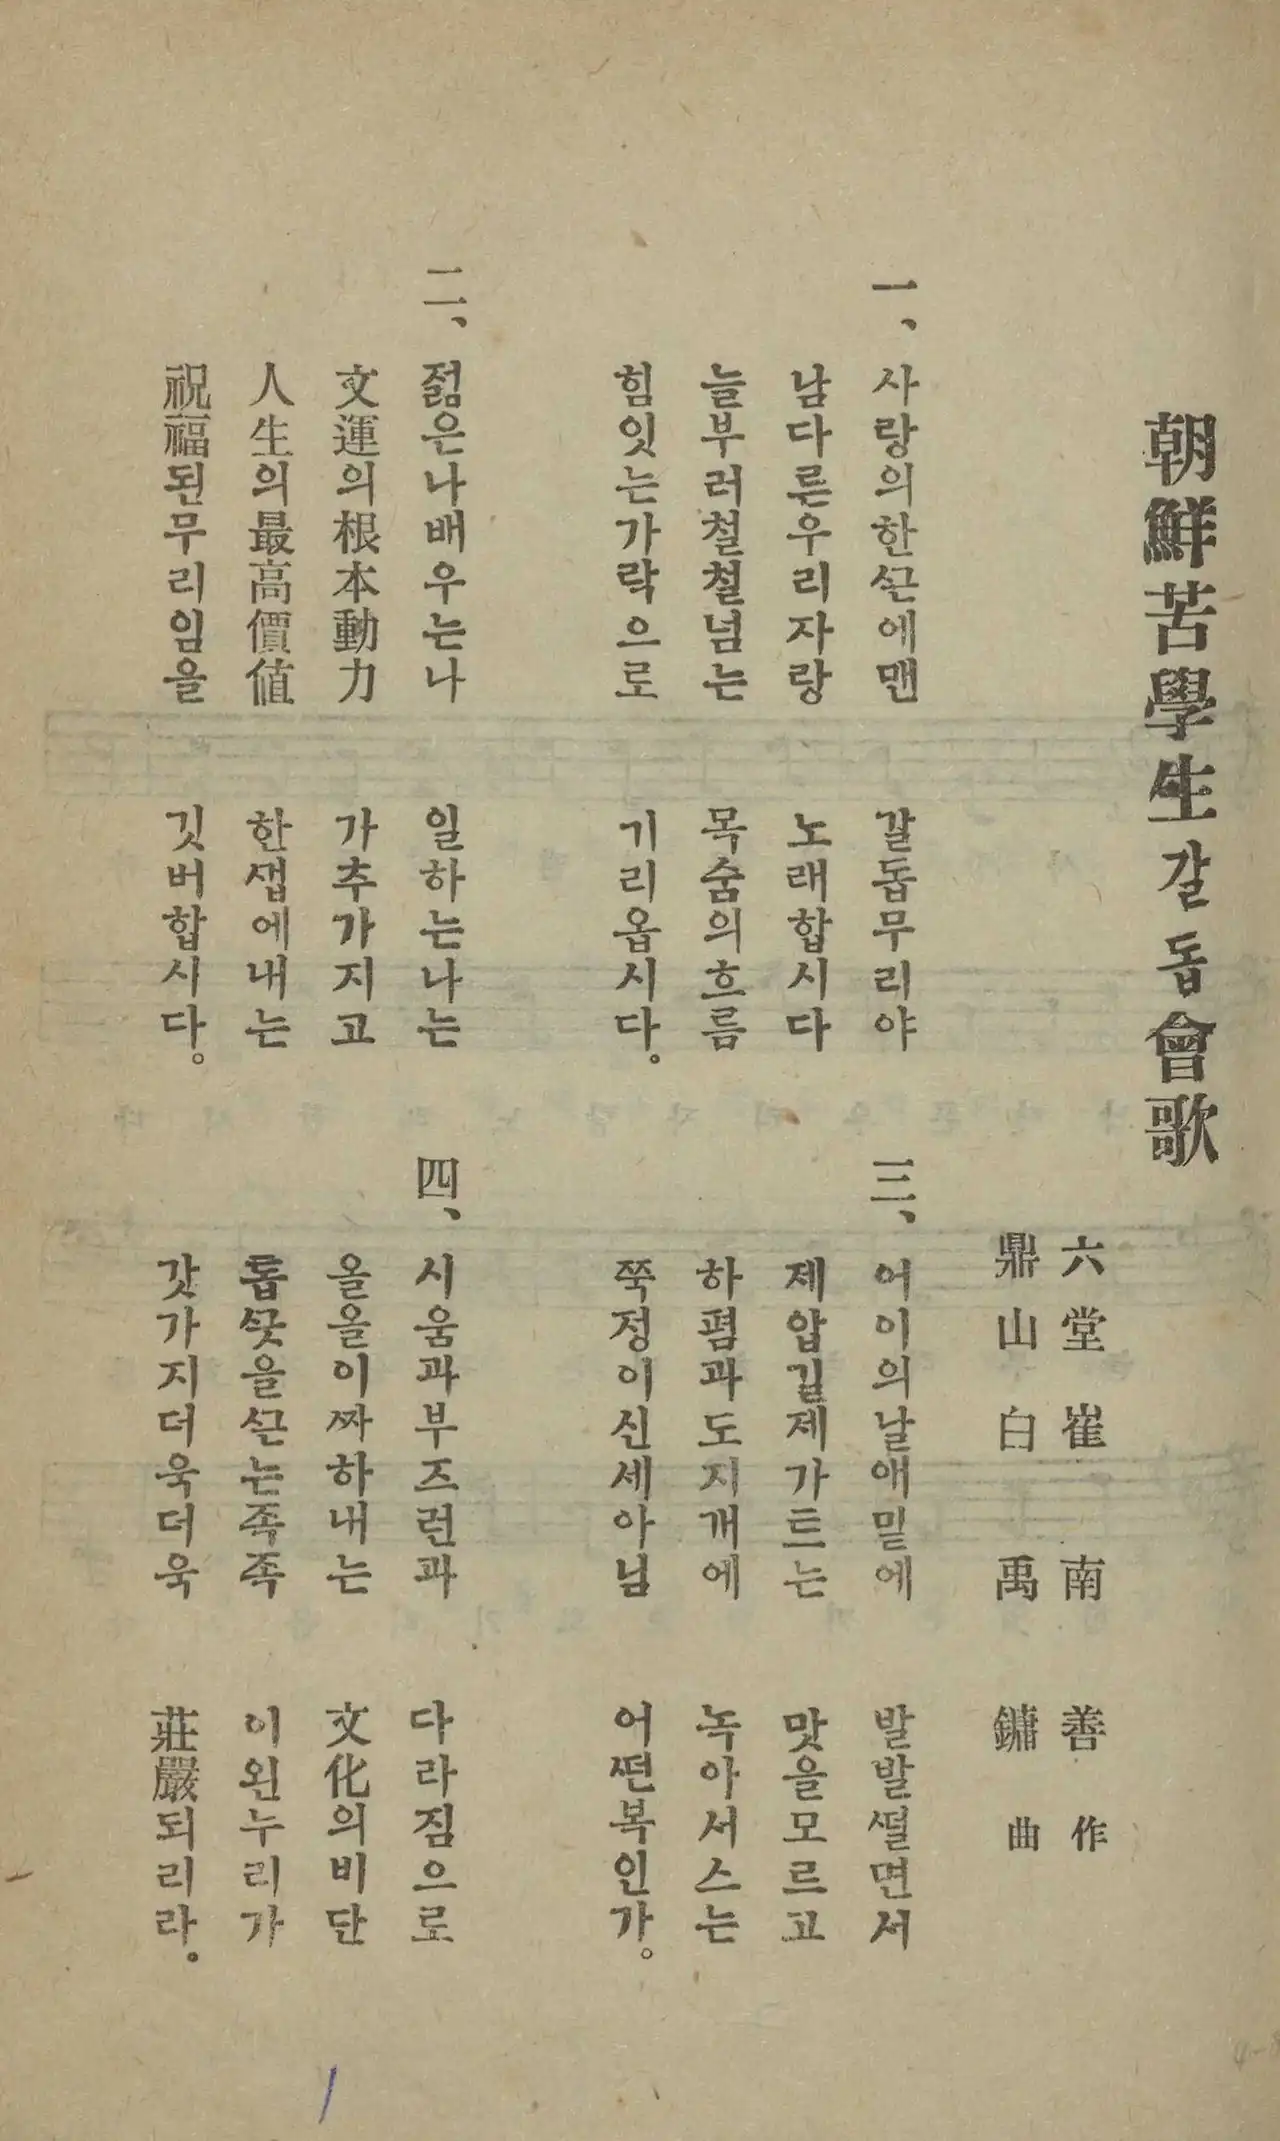 朝鮮苦學生갈돕會歌
六堂 崔南善 作
鼎山 白禹鏞 曲
一、사랑의한ᄭᅳᆫ에맨 갈돕무리야
남다른우리자랑 노래합시다
늘부러철철넘는 목숨의흐름
힘잇는가락으로 기리옵시다。
二、젊은나배우는나 일하는나는
文運의根本動力 가추가지고
人生의最高價値 한샙에내는
祝福된무리임을 깃버합시다。
三、어이의날애밑에 발발ᄯᅥᆯ면서
제압길제가트는 맛을모르고
하폄과도지개에 녹아서스는
쭉정이신세아님 어ᄯᅥᆫ복인가。
四、시움과부즈런과 다라짐으로
올올이짜하내는 文化의비단
톱ᄭᅳᆺ을ᄭᅳᆫ는족족 이왼누리가
갓가지더욱더욱 莊嚴되리라。